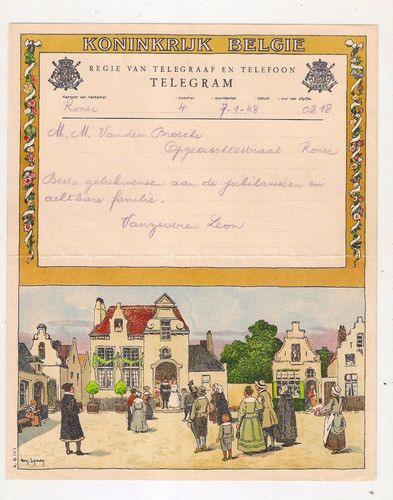 KONINKRIJK BELGIE
REGIE VAN TELEGRAAF EN TELEFOON
TELEGRAM
Kantoor van herkomst - nummer - woordental - datum - uur van afgifte
Ronse 4 7-1-48 09.18
M. M. Vanden Broecke
Opgeëischtestraat Ronse
Beste gelukwensen aan de jubilarissen en
achtbare familie.
Vanzeveren Leon
A. Lynen